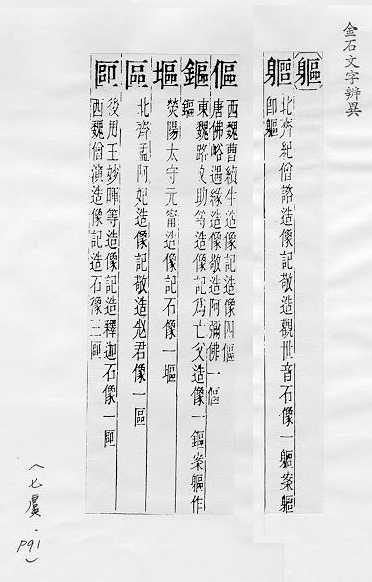 金石文字辨異
軀
軀
北齊紀僧諮造像記敬造觀世音石像一軀案軀
即軀
傴
西魏曹續生造像記造像四傴
唐佛峪遇緣造像敬造阿彌佛一傴
鏂
東魏路文助等造像記爲亡父造像一鏂案軀作
鏂
塸
滎陽太守元甯造像記石像一塸
區
北齊孟阿妃造像記敬造老君像一區
後周王妙暉等造像記造釋迦石像一
西魏僧演造像記造石像三
(七虞·P91)